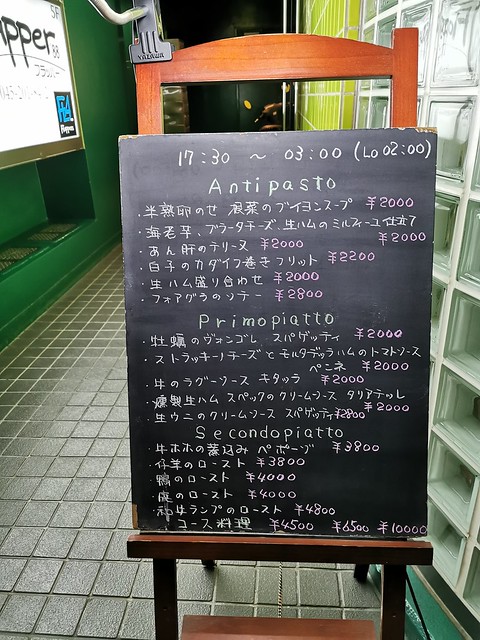 5F
apper
フラッパー
Flapper
YAZAWA
17:30 ~ 03:00 (Lo 02:00)
Antipasto
・半熟卵のせ 根菜のブイヨンスープ ¥2000
・海老芋、ブラータチーズ、生ハムのミルフィーユ仕立て
¥2000
・あん肝のテリーヌ ¥2000
・白子のカダイフ巻きフリット ¥2200
・生ハム盛り合わせ ¥2000
・フォアグラのソテー ¥2800
Primopiatto
・牡蠣のヴォンゴレ スパゲッティ ¥2000
・ストラッキーノチーズとモルタデッラハムのトマトソース
ペンネ ¥2000
・牛のラグーソース キタッラ ¥2000
・燻製生ハム スペックのクリームソース タリアテッレ
¥2000
・生ウニのクリームソース スパゲッティ ¥2800
Secondopiatto
・牛ホホの葉込み ペポーゾ ¥3800
・仔羊のロースト ¥3800
・鴨のロースト ¥4000
・鹿のロースト ¥4000
・和牛ランプのロースト ¥4800
コース料理 ¥4500 ¥6500 ¥10000